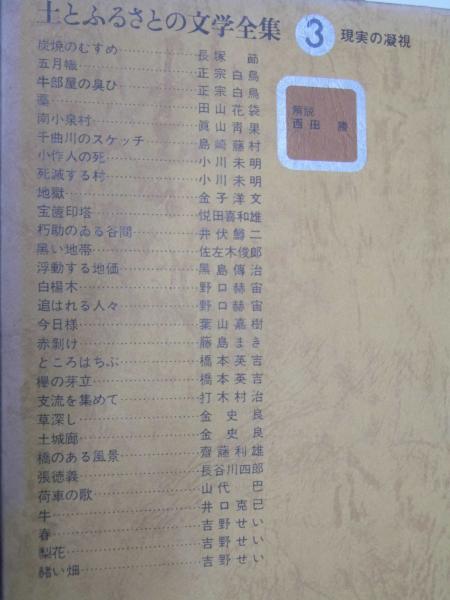 土とふるさとの文学全集 3 現実の凝視
解説
西田 勝
炭焼のむすめ 長塚 節
五月幟 正宗白鳥
牛部屋の臭ひ 正宗白鳥
藁 田山花袋
南小泉村 眞山靑果
千曲川のスケッチ 島崎藤村
小作人の死 小川未明
死滅する村 小川未明
地獄 金子洋文
宝篋印塔 悦田喜和雄
朽助のゐる谷間 井伏鱒二
黒い地帯 佐左木俊郎
浮動する地価 黒島傳治
白楊木 野口赫宙
追はれる人々 野口赫宙
今日様 葉山嘉樹
赤剝け 藤島まき
ところはちぶ 橋本英吉
欅の芽立 橋本英吉
支流を集めて 打木村治
草深し 金史良
土城廊 金史良
橋のある風景 齋藤利雄
張徳義 長谷川四郎
荷車の歌 山代 巴
牛 井口克己
春 吉野せい
梨花 吉野せい
赭い畑 吉野せい